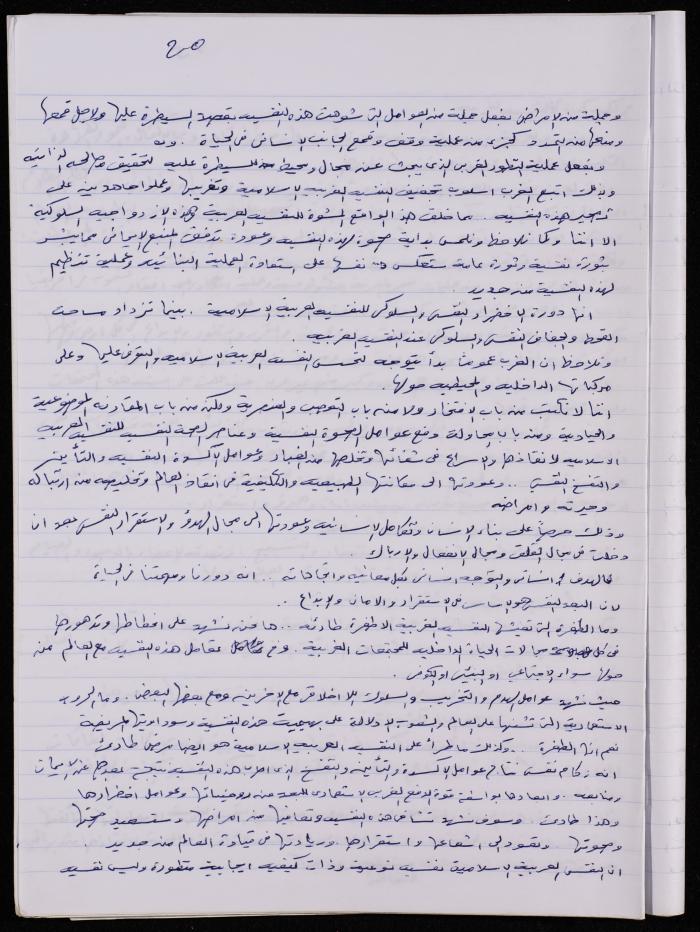 ٢٥
وحملت من الامراض بفعل جملة من العوامل التي شوهت هذه النفسية بقصد السيطرة عليها ولاجل قمعها
ومنعها من التمرد كجزء من عملية وقف وقمع الجانب الانساني في الحياة .
وبفعل عملية التطور الغربي الذي يبحث عن مجال ومحيط للسيطرة عليه لتحقيق مصالحه الذاتية
وبذلك اتبع الغرب اسلوب تحقير النفسية العربية الاسلامية وتغريبها وعملوا جاهدين على
تدمير هذه النفسية .. مما خلق هذا الواقع المشوة للنفسية العربية وهذه الازدواجية السلوكية
الا اننا وكما نلاحظ ونلمس بداية صحوة لهذه النفسية وعودة تدفق المنبع الايماني مما يبشر
بثورة نفسية وثورة عامة ستعكس نفسها على استعادة العملية البنائية وعملية تنظيم
لهذه النفسية من جديد
انها دورة الاخضرار النفسي والسلوكي للنفسية العربية الاسلامية . بينما تزداد مساحة
القحط والجفاف النفسي والسلوكي عند النفسية الغربية .
ونلاحظ ان الغرب عموما بدأ يتوجه لتحسس النفسية العربية الاسلامية والتعرف عليها وعلى
حركاتها الداخلية والمحيطية حولها .
اننا لا نكتب من باب الافتخار ولا من باب التعصب والعنصرية ولكن من باب المقارنة الموضوعية
والحيادية ومن باب محاولة دفع عوامل الصحوة النفسية وعناصر الصحة النفسية للنفسية العربية
الاسلامية لانقاذها والاسراع في شفائها وتخلصها من الغبار وعوامل الاكسدة النفسية والتأين
والتفسخ النفسي .. وعودتها الى مكانتها الطبيعية والتكليفية في انقاذ العالم وتخليصه من ارتباكه
وحيرته وامراضه
وذلك حرصاً على بناء الانسان وتكامل الانسانية وعودتها الى مجال الهدوء والاستقرار النفسي بعد ان
دخلت في مجال القلق ومجال الانفعال والارباك .
فالهدف انساني والتوجه انساني بكل معانيه واتجاهاته .. انه دورنا ومهمتنا في الحياة
لان البعد النفسي هو الاساس في الاستقرار والامان والابداع ..
وما الطفرة التي تعيشها النفسية الغربية الا طفرة طارئة .. ها نحن نشهد على انحطاطها وتدهورها
في كل مجالات الحياة الداخلية للمجتمعات الغربية . وفي تعامل هذه النفسية مع العالم من
حولها سواء الاجتماعي او البيئي او الكوني .
حيث نشهد عوامل الهدم والتخريب والسلوك اللااخلاقي مع الاخرين ومع بعضها البعض . وما الحروب
الاستعمارية التي تشنها على العالم والشعوب الا دلالة على بهيمية هذه النفسية وسوداويتها المريضة
نعم انها الطفرة .. وكذلك ما طرأ على النفسية العربية الاسلامية هو ايضا مرض طارئ
انه زكام نفسي نتاج عوامل الاكسدة والتأين والتفسخ الذي اصاب هذه النفسية نتيجة بعدها عن الايمان
ومنابعه . وابعادها بواسطة قوة الدفع الغربي الاستعماري للبعد عن روحانياتها وعوامل اخضرارها
وهذا طارئ . وسوف نشهد شفاء هذه النفسية وتعافيها من امراضها وستستعيد صحتها
وصحوتها وتعود الى اشعاعها واستقرارها . وريادتها في قيادة العالم من جديد
ان النفسي العربية الاسلامية نفسية نوعية وذات كيفية ايجابية متطورة وليس نفسية